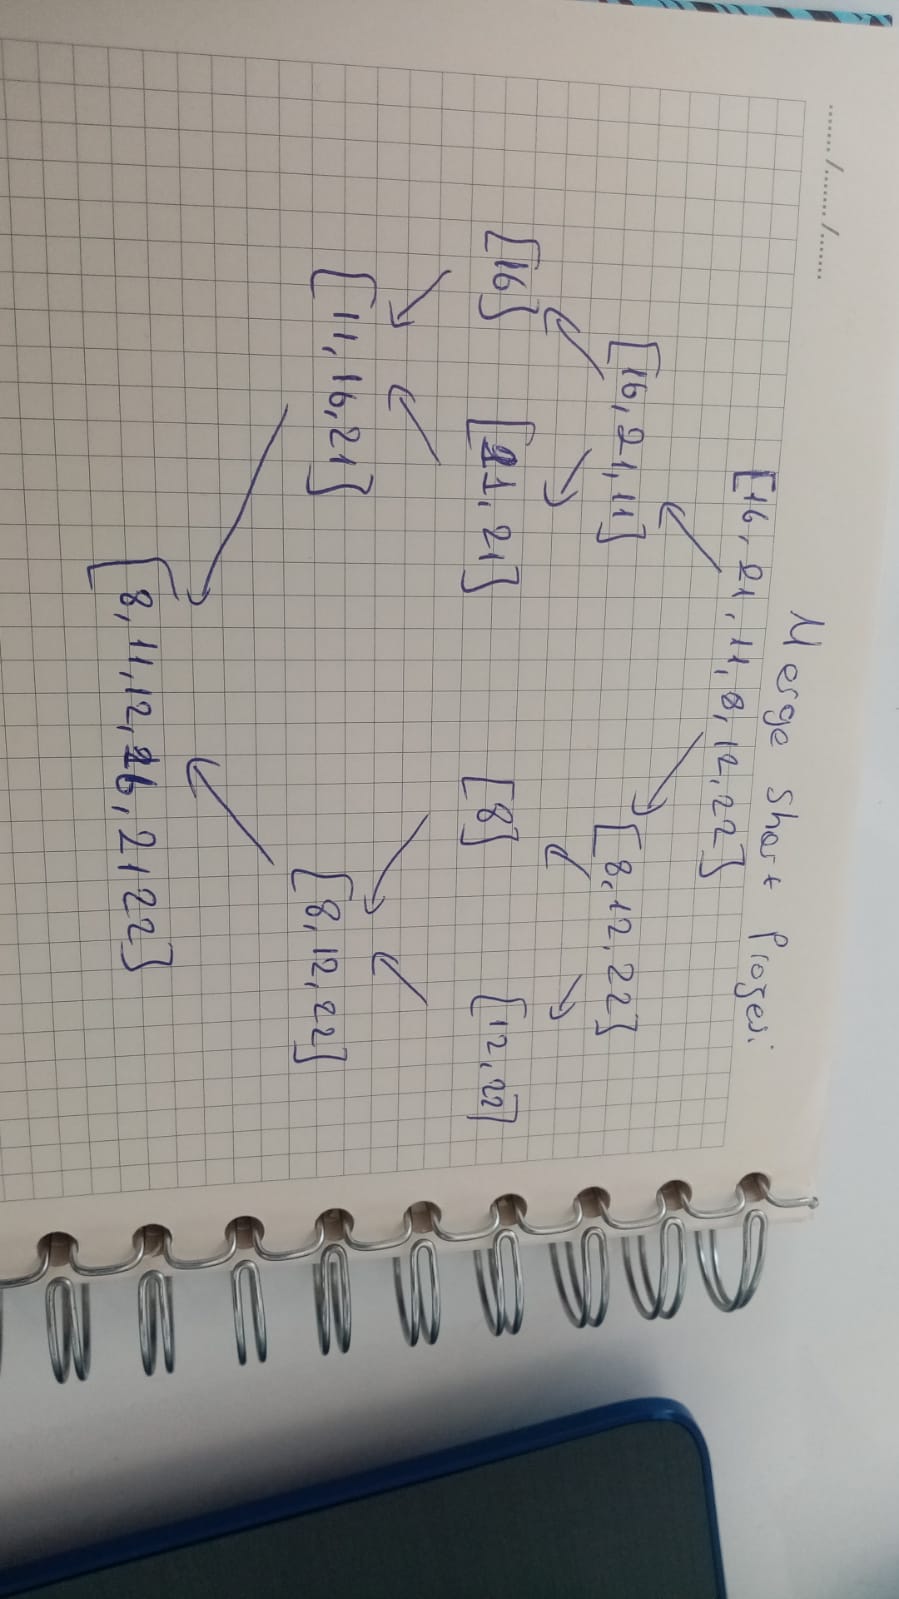 ....../....../......
Merge Short Projesi
[16, 21, 11, 8, 12, 22]
[16, 21, 11] [8, 12, 22]
[16] [11, 21] [8] [12, 22]
[11, 16, 21] [8, 12, 22]
[8, 11, 12, 16, 21 22]